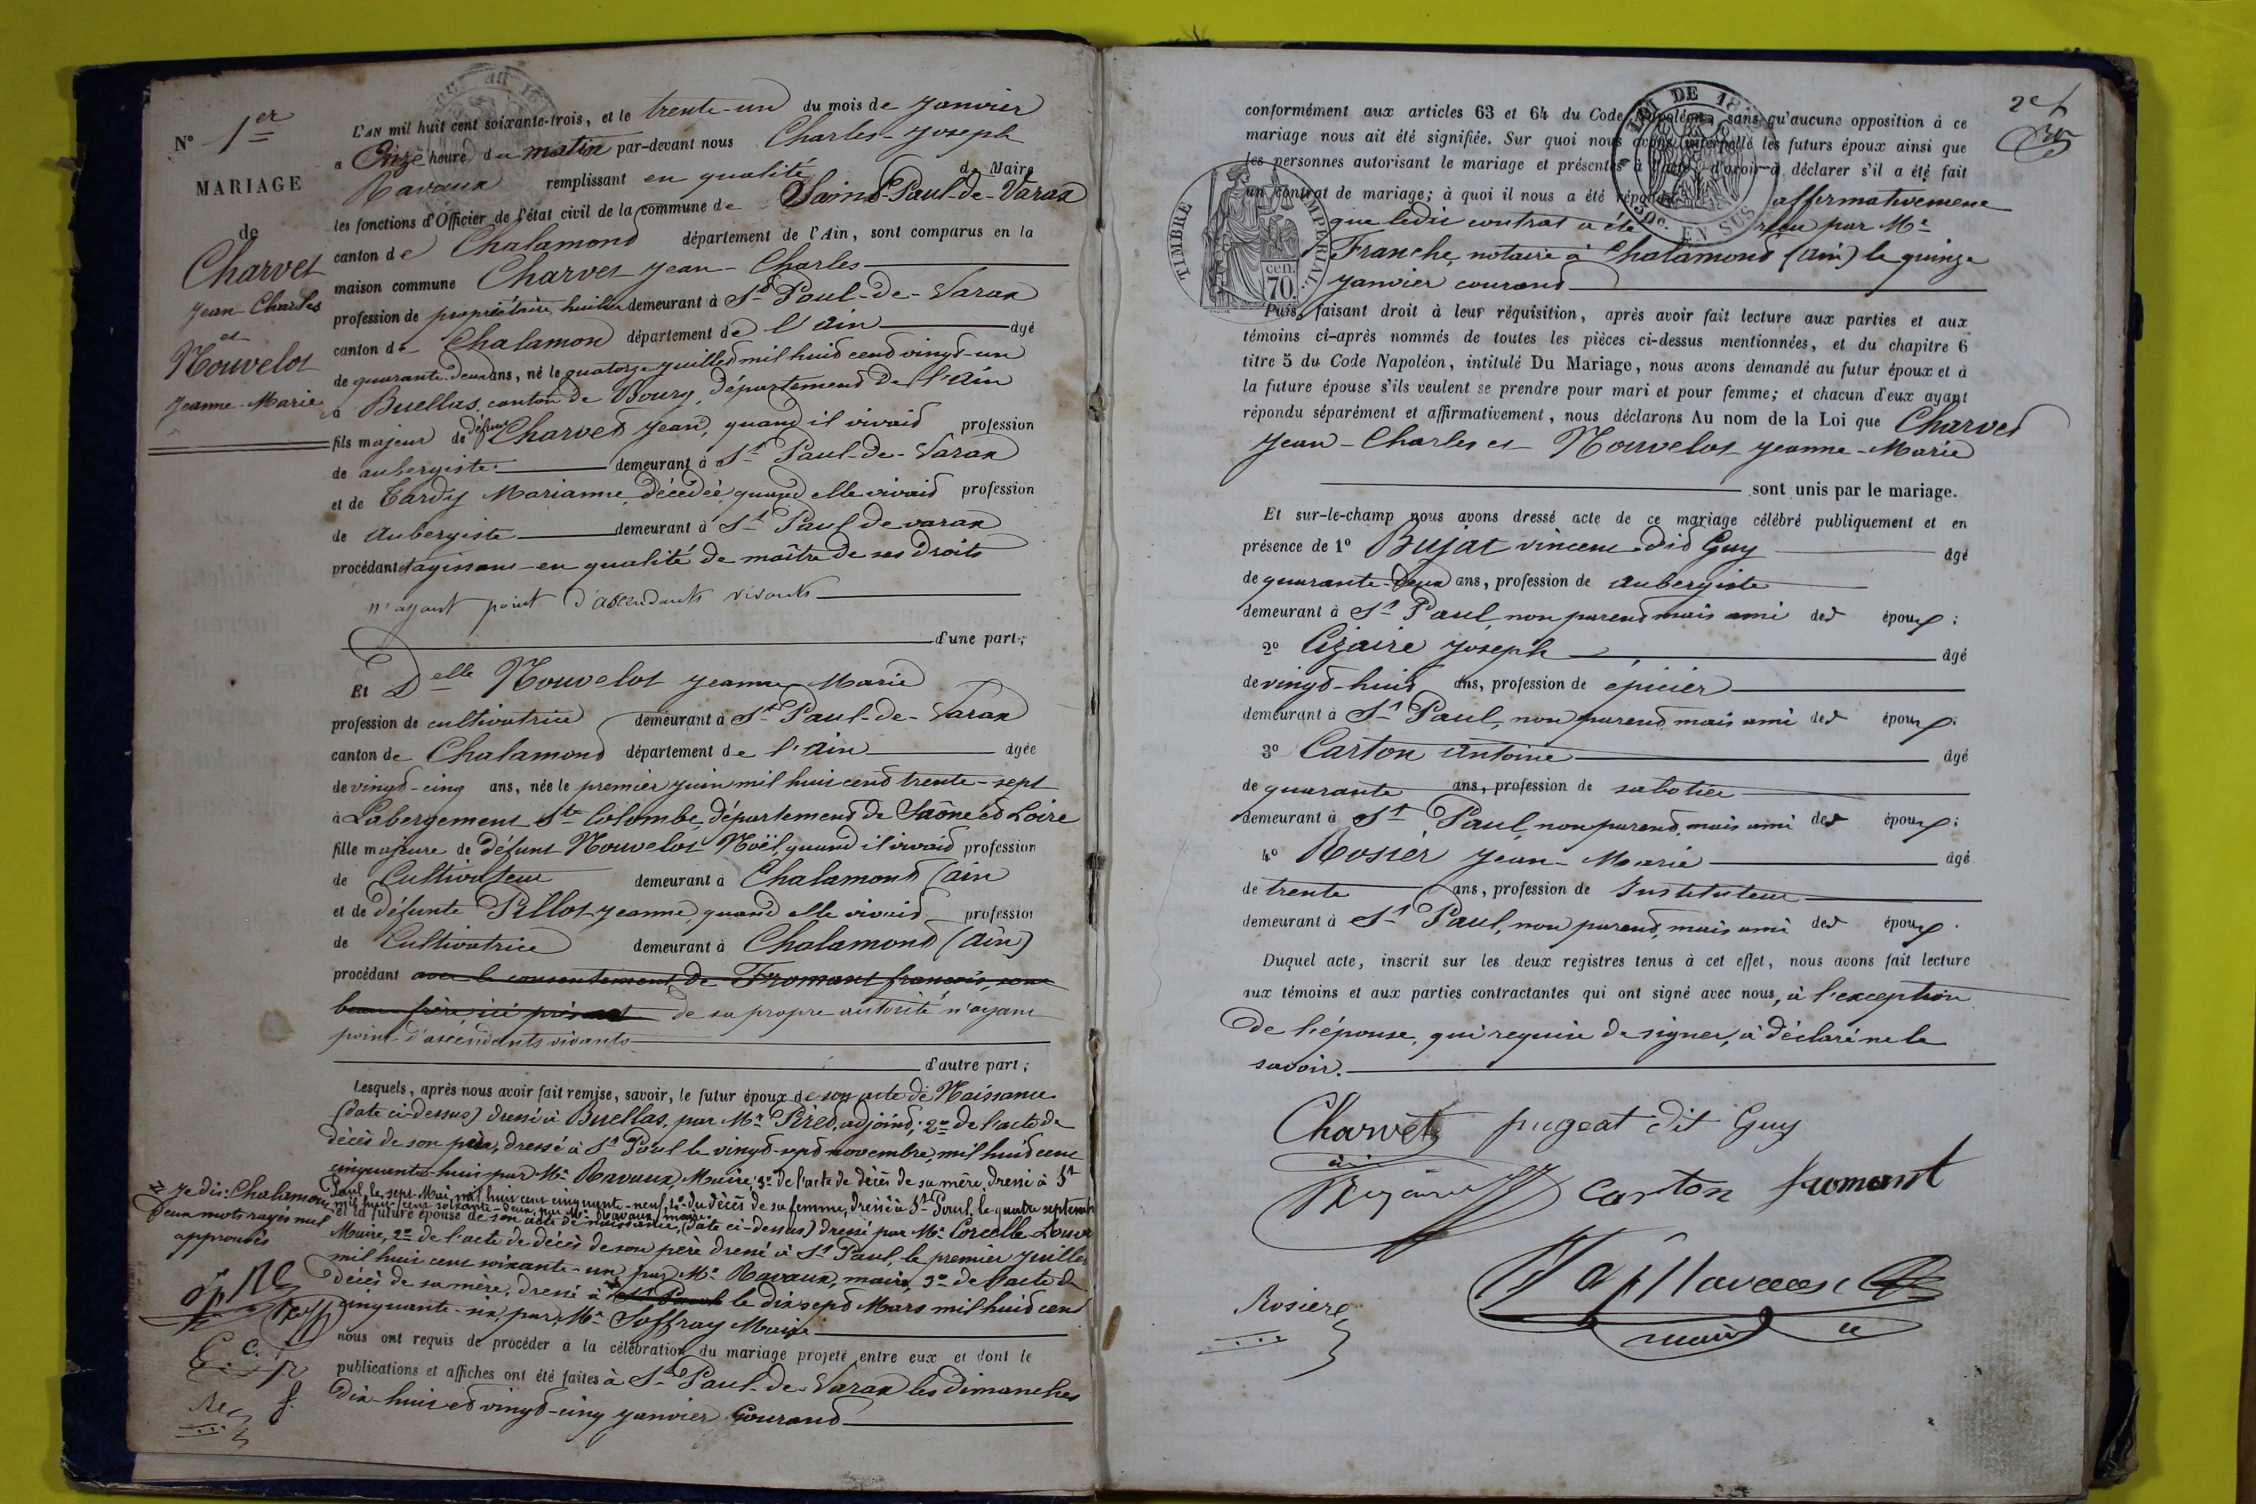 N° 1er
MARIAGE
de
Charvet
Jean-Charles
et
Nouvelot
Jeanne-Marie
L'AN mil huit cent soixante-trois, et le trente-un du mois de Janvier
a Onze heure du matin par-devant nous Charles-Joseph
Ravaux remplissant en qualité de Maire
les fonctions d'Officier de l'état civil de la commune de Saint-Paul-de-Varax
canton de Chalamond département de l'Ain, sont comparus en la
maison commune Charvet Jean-Charles
profession de propriétaire, huilier demeurant à St Paul-de-Varax
canton de Chalamon département de l'ain âgé
de quarante-deux ans, né le quatorze juillet mil huit cent vingt-un
à Buellas, canton de Bourg, département de l'Ain
fils majeur de défunt Charvet Jean, quand il vivait profession
de aubergiste demeurant à St Paul-de-Varax
et de Tardy Marianne, décédée, quand elle vivait profession
de Aubergiste demeurant à St Paul de varax
procédant et agissant en qualité de maître de ses droits
n'ayant point d'ascendants vivants
d'une part;
Et Delle Nouvelot Jeanne-Marie
profession de cultivatrice demeurant à St Paul-de-Varax
canton de Chalamond département de l'ain âgée
de vingt-cinq ans, née le premier juin mil huit cent trente-sept
à Labergement Ste Colombe, département de Saône et Loire
fille majeure de défunt Nouvelot Noël, quand il vivait profession
de Cultivateur demeurant à Chalamond (ain
et de défunte Pillot Jeanne, quand elle vivait profession
de Cultivatrice demeurant à Chalamond (ain)
procédant avec le consentement de Fromant françois, son
beau frère ici présent de sa propre autorité n'ayant
point d'ascendants vivants
d'autre part;
Lesquels, après nous avoir fait remise, savoir, le futur époux de son acte de Naissance
(date ci-dessus) dressé à Buellas, par Mr Péret, adjoint; 2° de l'acte de
décès de son père, dressé à St Paul le vingt-sept novembre, mil huit cent
cinquante-huit par Mr Ravaux, Maire; 3° de l'acte de décès de sa mère, dressé à St
Paul, le sept Mai, mil huit cent cinquante-neuf, 4° du décès de sa femme, dressé à St Paul, le quatre septembre
mil huit cent soixante-deux, par Mr Ravaux, maire.
et la future épouse de son acte de naissance, (date ci-dessus) dressé par Mr Corcelle Louis
Maire, 2° de l'acte de décès de son père dressé à St Paul, le premier juillet
mil huit cent soixante-un, par Mr Ravaux, maire, 3° de l'acte de
décès de sa mère, dressé à St Paul le dix sept Mars mil huit cent
cinquante-six, par, Mr Soffray Maire
nous ont requis de procéder à la célébration du mariage projeté entre eux et dont le
publications et affiches ont été faites à St Paul-de-Varax les dimanches
dix-huit et vingt-cinq janvier Courant
Je dis: Chalamond
deux mots rayés nul
approuvés
2e
conformément aux articles 63 et 64 du Code Napoléon, sans qu'aucune opposition à ce
mariage nous ait été signifiée. Sur quoi nous avons interpellé les futurs époux ainsi que
les personnes autorisant le mariage et présentes à l'acte d'avoir à déclarer s'il a été fait
un contrat de mariage; à quoi il nous a été répondu affirmativement
que ledit contrat a été reçu par Me
Franche, notaire à Chalamond (ain) le quinze
janvier courant
LOI DE 18
50c. EN SUS
TIMBRE IMPÉRIAL
cen. 70
Puis, faisant droit à leur réquisition, après avoir fait lecture aux parties et aux
témoins ci-après nommés de toutes les pièces ci-dessus mentionnées, et du chapitre 6
titre 5 du Code Napoléon, intitulé Du Mariage, nous avons demandé au futur époux et à
la future épouse s'ils veulent se prendre pour mari et pour femme; et chacun d'eux ayant
répondu séparément et affirmativement, nous déclarons Au nom de la Loi que Charvet
Jean-Charles et Nouvelot Jeanne-Marie
sont unis par le mariage.
Et sur-le-champ nous avons dressé acte de ce mariage célébré publiquement et en
présence de 1° Bujat vincent dit Guy âgé
de quarante-deux ans, profession de aubergiste
demeurant à St Paul, non parent mais ami des époux;
2° Cizaire Joseph âgé
de vingt-huit ans, profession de épicier
demeurant à St Paul, non parent mais ami des époux;
3° Carton Antoine âgé
de quarante ans, profession de sabotier
demeurant à St Paul, non parent, mais ami des époux;
4° Rosier Jean-Marie âgé
de trente ans, profession de Instituteur
demeurant à St Paul, non parent, mais ami des époux.
Duquel acte, inscrit sur les deux registres tenus à cet effet, nous avons fait lecture
aux témoins et aux parties contractantes qui ont signé avec nous, à l'exception
de l'épouse, qui requise de signer, a déclaré ne le
savoir.
Charvet pugeat dit Guy
carton fromant
Rosier
Ravaux
maire